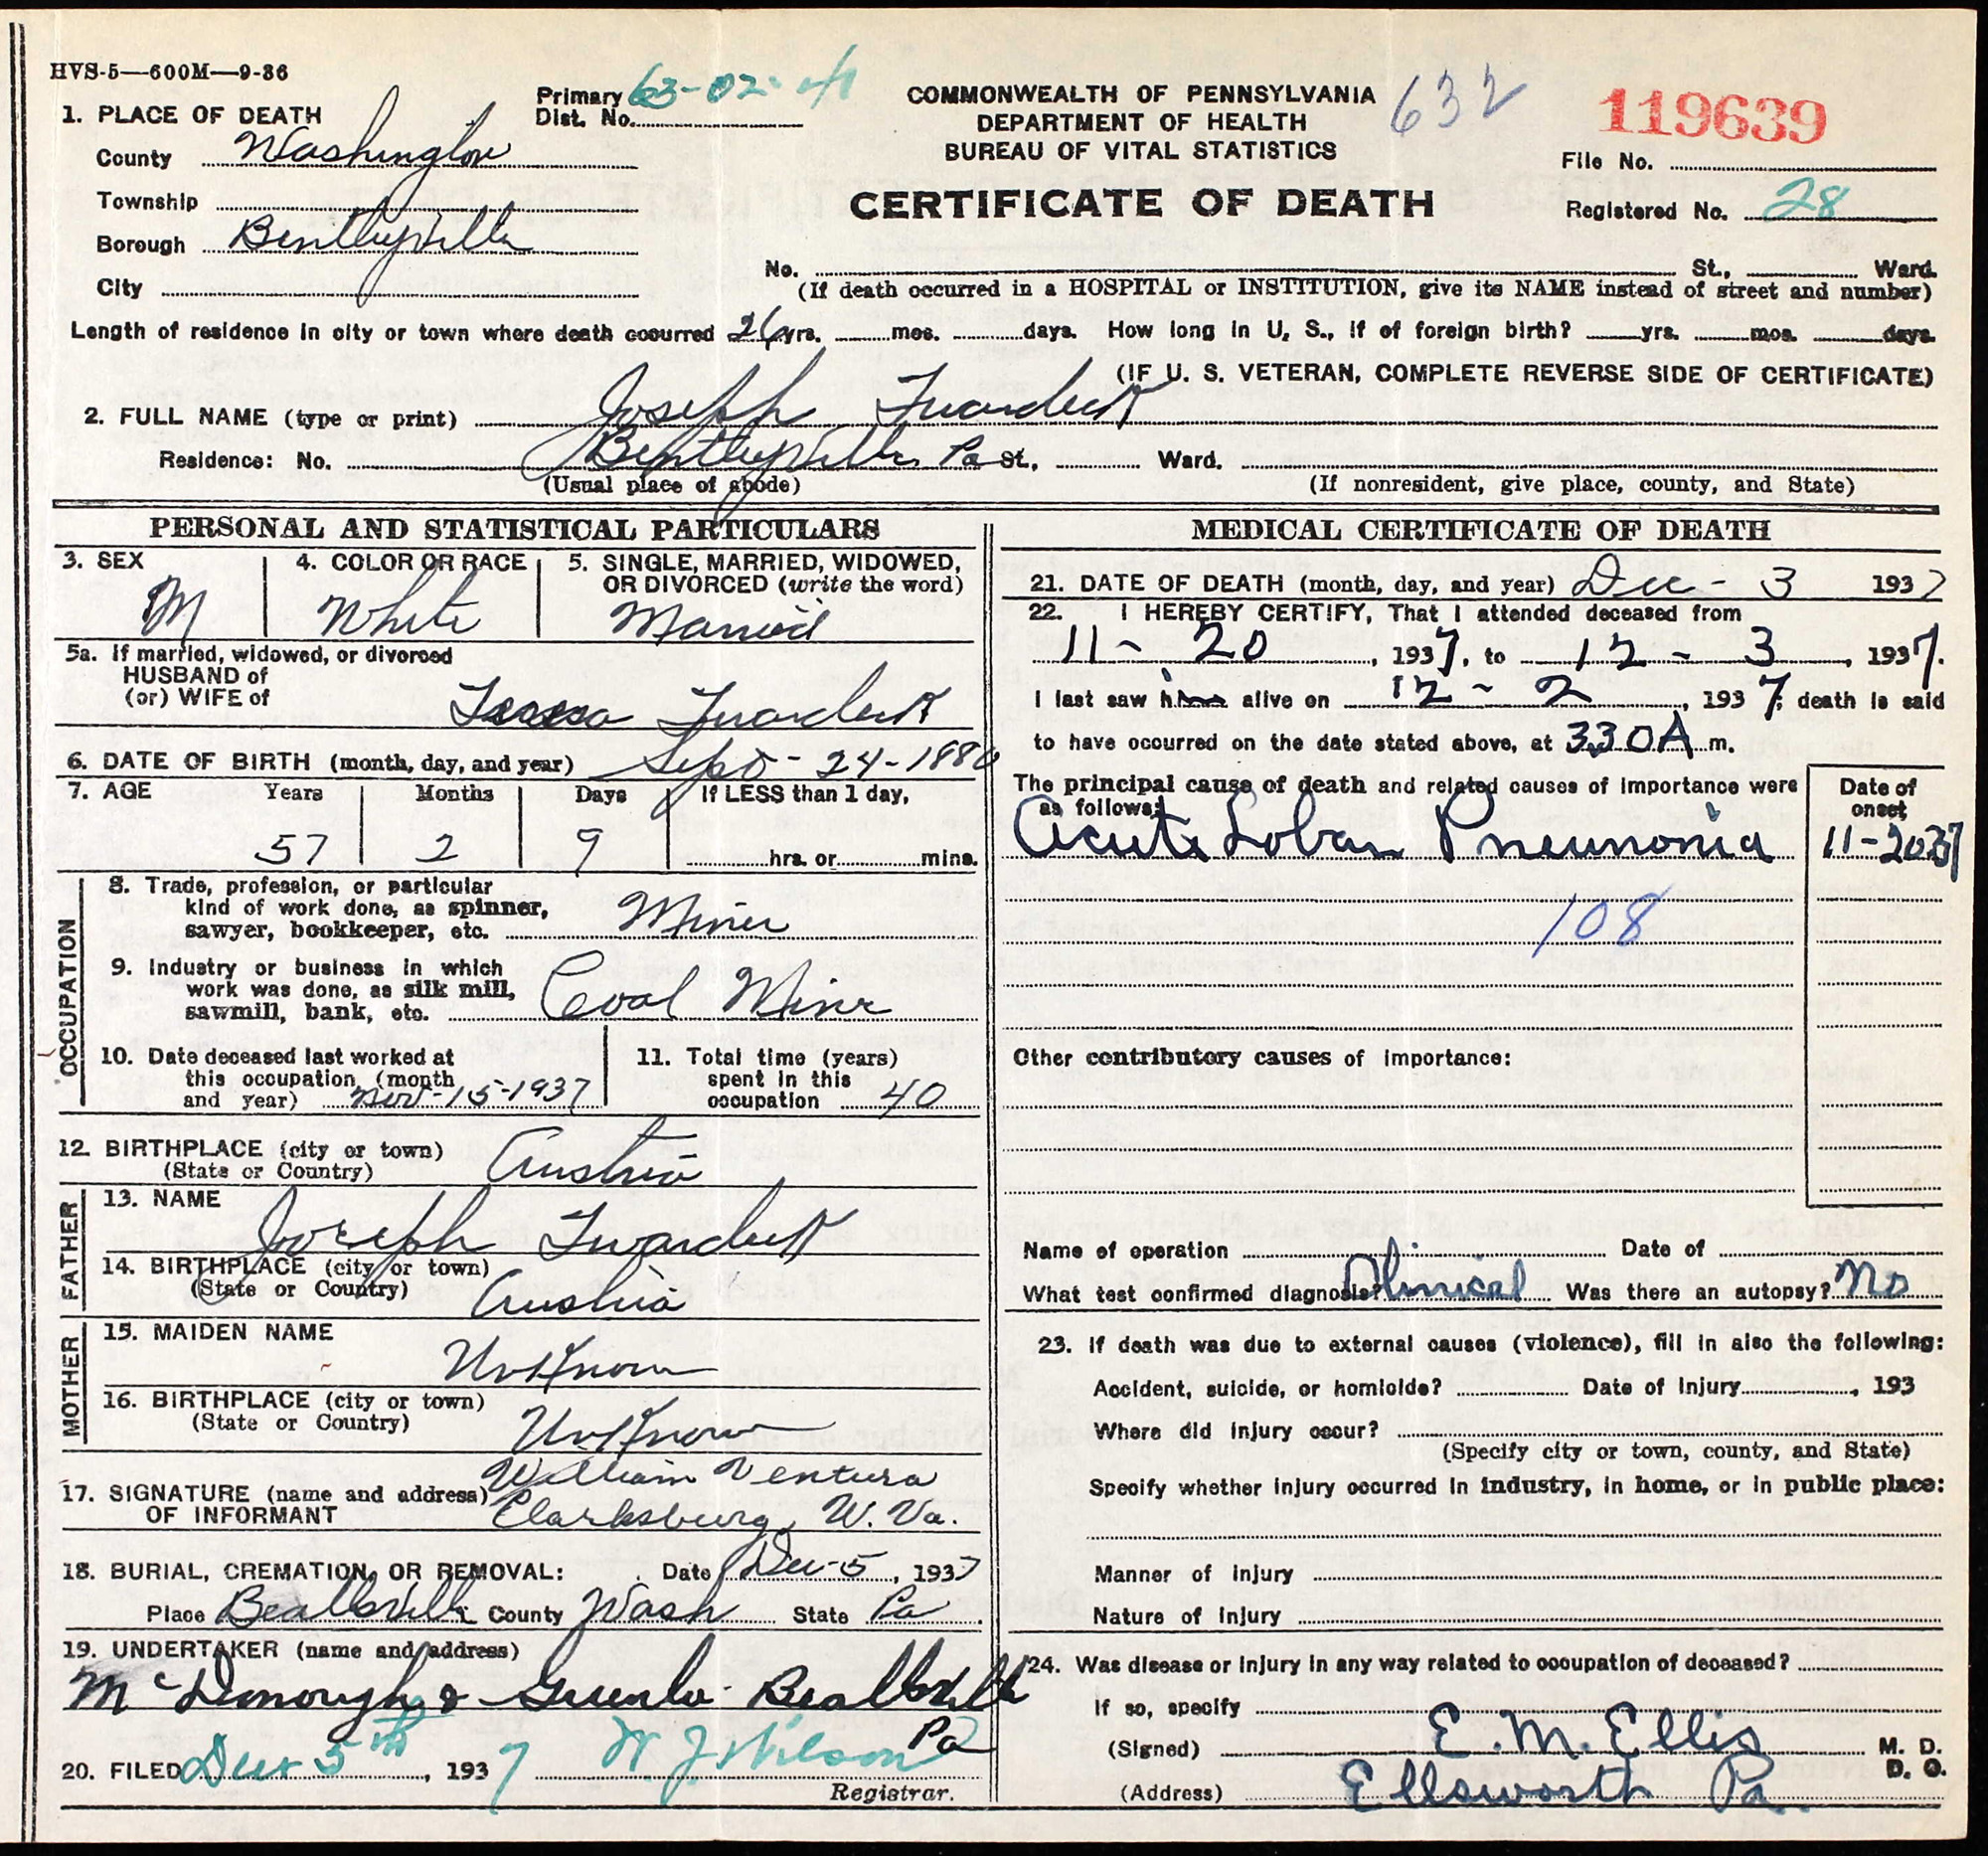 HVS-5—600M—9-36
Primary Dist. No. 63-02-41
COMMONWEALTH OF PENNSYLVANIA
DEPARTMENT OF HEALTH
BUREAU OF VITAL STATISTICS
632
119639
File No.
Registered No. 28
CERTIFICATE OF DEATH
1. PLACE OF DEATH
County Washington
Township
Borough Bentleyville
City
No. St., Ward.
(If death occurred in a HOSPITAL or INSTITUTION, give its NAME instead of street and number)
Length of residence in city or town where death occurred 26 yrs. mos. days. How long in U. S., if of foreign birth? yrs. mos. days.
(IF U. S. VETERAN, COMPLETE REVERSE SIDE OF CERTIFICATE)
2. FULL NAME (type or print) Joseph Twardeck
Residence: No. Bentleyville Pa St., Ward.
(Usual place of abode) (If nonresident, give place, county, and State)
PERSONAL AND STATISTICAL PARTICULARS
3. SEX M
4. COLOR OR RACE White
5. SINGLE, MARRIED, WIDOWED, OR DIVORCED (write the word) Married
5a. If married, widowed, or divorced
HUSBAND of
(or) WIFE of Teresa Twardeck
6. DATE OF BIRTH (month, day, and year) Sept - 24 - 1880
7. AGE Years Months Days If LESS than 1 day,
57 2 9 hrs. or mins.
OCCUPATION
8. Trade, profession, or particular
kind of work done, as spinner,
sawyer, bookkeeper, etc. Miner
9. Industry or business in which
work was done, as silk mill,
sawmill, bank, etc. Coal Mine
10. Date deceased last worked at
this occupation (month
and year) Nov-15-1937
11. Total time (years)
spent in this
occupation 40
12. BIRTHPLACE (city or town)
(State or Country) Austria
FATHER
13. NAME
Joseph Twardeck
14. BIRTHPLACE (city or town)
(State or Country) Austria
MOTHER
15. MAIDEN NAME
UnKnown
16. BIRTHPLACE (city or town)
(State or Country) UnKnown
17. SIGNATURE (name and address) William Ventura
OF INFORMANT Clarksburg, W. Va.
18. BURIAL, CREMATION, OR REMOVAL: Date Dec-5, 1937
Place Beallsville County Wash State Pa
19. UNDERTAKER (name and address)
McDonough & Beallsville
Pa
20. FILED Dec 5th, 1937 W. J. Wilson
Registrar.
MEDICAL CERTIFICATE OF DEATH
21. DATE OF DEATH (month, day, and year) Dec - 3 1937
22. I HEREBY CERTIFY, That I attended deceased from
11 - 20, 1937, to 12 - 3, 1937.
I last saw him alive on 12 - 2, 1937, death is said
to have occurred on the date stated above, at 330A m.
The principal cause of death and related causes of importance were
as follows:
Date of
onset
Acute Lobar Pneumonia 11-20-37
108
Other contributory causes of importance:
Name of operation Date of
What test confirmed diagnosis? Clinical Was there an autopsy? No
23. If death was due to external causes (violence), fill in also the following:
Accident, suicide, or homicide? Date of injury , 193
Where did injury occur?
(Specify city or town, county, and State)
Specify whether injury occurred in industry, in home, or in public place:
Manner of injury
Nature of injury
24. Was disease or injury in any way related to occupation of deceased?
If so, specify
(Signed) E. M. Ellis M. D.
D. O.
(Address) Ellsworth Pa.